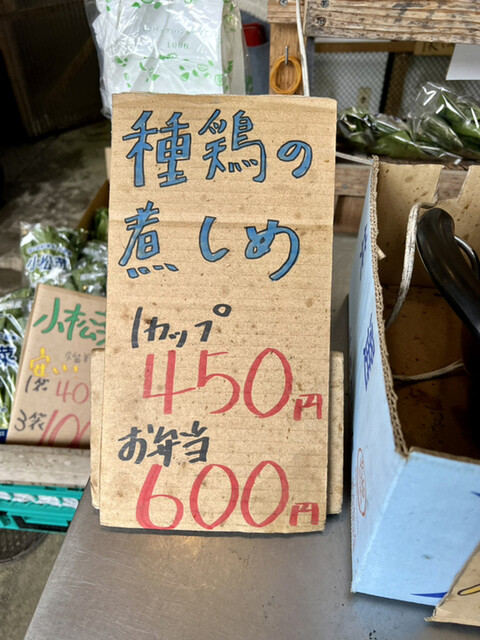 種鶏の
煮しめ
1カップ
450円
お弁当
600円
小松菜
1袋 40
3袋 100